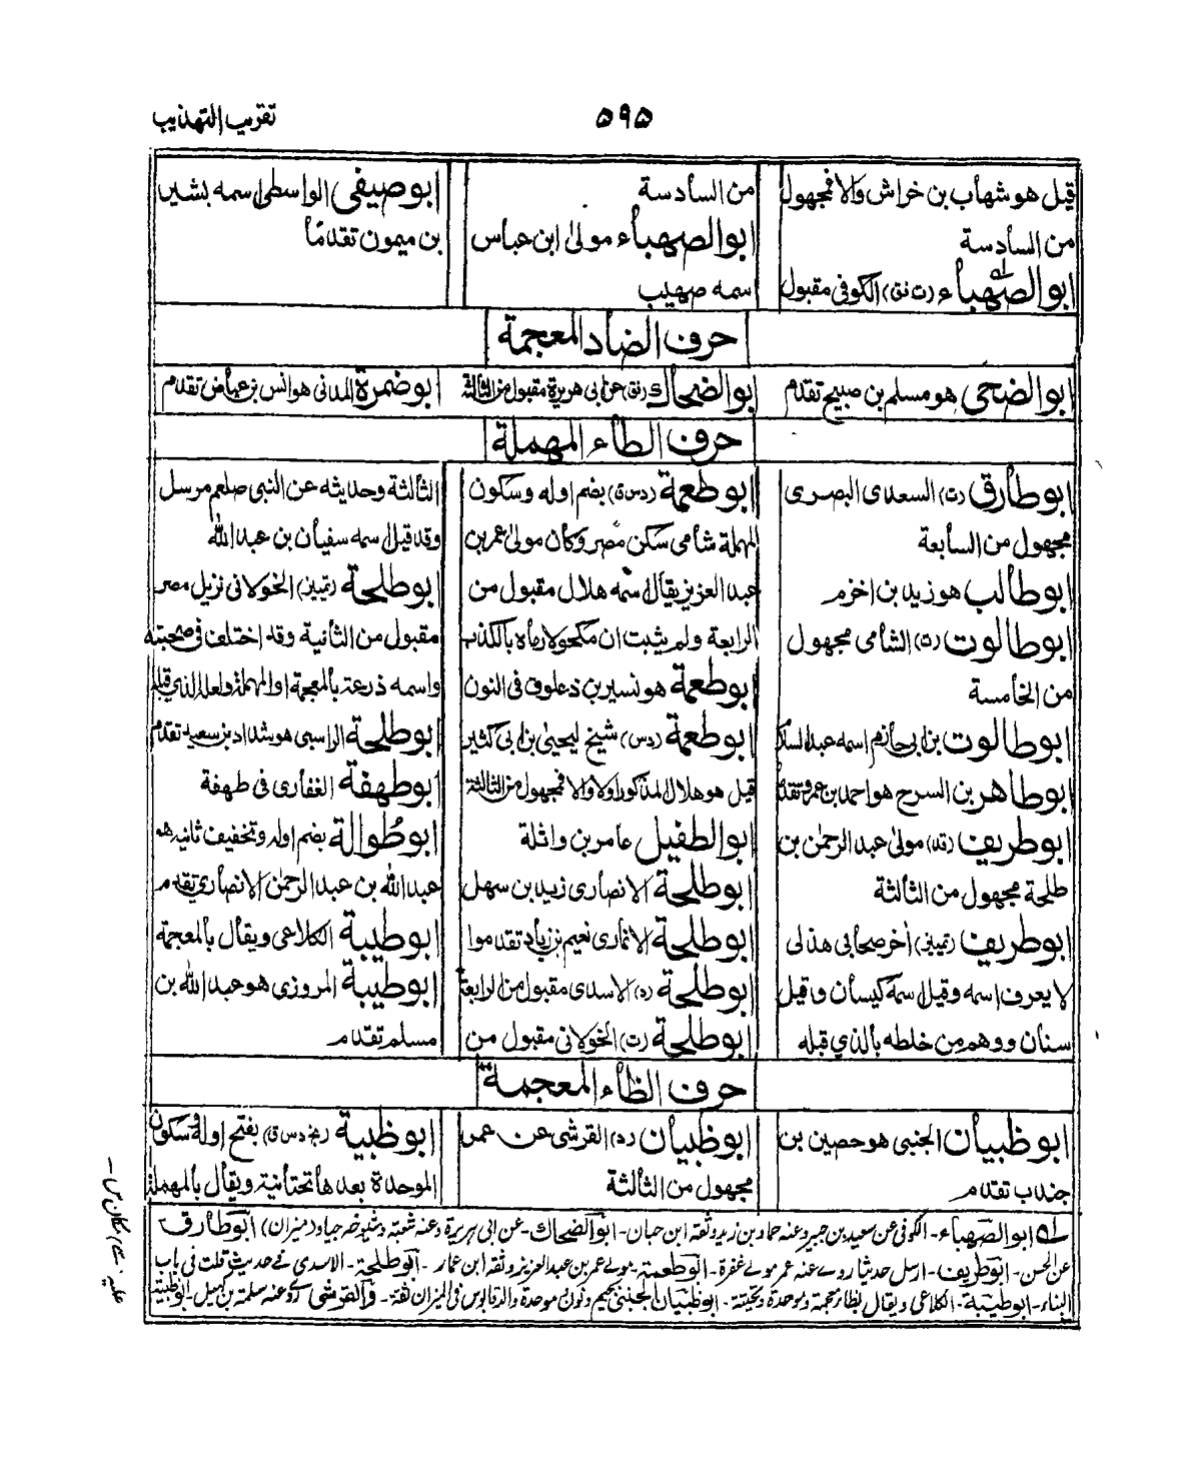 تقريب التهذيب
٥٩٥
قيل هو شهاب بن خراش والا فمجهول
من السادسة
ابو الصهباء (ت نق) الكوفى مقبول
من السادسة
ابو الصهباء مولى ابن عباس
اسمه صهيب
ابو صيفى الواسطى اسمه بشير
بن ميمون تقدما
حرف الضاد المعجمة
ابو الضحى هو مسلم بن صبيح تقدم
ابو الضحاك (نق) عن ابى هريرة مقبول من الثالثة
ابو ضمرة المدنى هو انس بن عياض تقدم
حرف الطاء المهملة
ابو طارق (ت) السعدى البصرى
مجهول من السابعة
ابو طالب هو زيد بن اخزم
ابو طالوت (ت) الشامى مجهول
من الخامسة
ابو طالوت بن ابى حازم اسمه عبد السلام
ابو طاهر بن السرح هو احمد بن عمرو تقدم
ابو طريف (قد) مولى عبد الرحمٰن بن
طلحة مجهول من الثالثة
ابو طريف (تمييز) آخر صحابى هذلى
لا يعرف اسمه وقيل اسمه كيسان وقيل
سنان ووهم من خلطه بالذي قبله
ابو طعمة (د س ق) بضم اوله وسكون
المهملة شامى سكن مصر وكان مولى عمر بن
عبد العزيز يقال اسمه هلال مقبول من
الرابعة ولم يثبت ان مكحولا رماه بالكذب
ابو طعمة هو نسير بن ذعلوق فى النون
ابو طعمة (د س) شيخ ليحيى بن ابى كثير
قيل هو هلال المذكور اولا والا فمجهول من الثالثة
ابو الطفيل عامر بن واثلة
ابو طلحة الانصارى زيد بن سهل
ابو طلحة الانمارى نعيم بن زياد تقدموا
ابو طلحة (د) الاسدى مقبول من الرابعة
ابو طلحة (ت) الخولانى مقبول من
الثالثة وحديثه عن النبى صلعم مرسل
وقد قيل اسمه سفيان بن عبد الله
ابو طلحة (تمييز) الخولانى نزيل مصر
مقبول من الثانية وقد اختلف فى صحبته
واسمه ذرعة بالمعجمة او المهملة ولعله الذي قبله
ابو طلحة الراسبى هو شداد بن سعيد تقدم
ابو طهفة الغفارى فى طهفة
ابو طُوالة بضم اوله وتخفيف ثانيه هو
عبد الله بن عبد الرحمٰن الانصارى تقدم
ابو طيبة الكلاعى ويقال بالمعجمة
ابو طيبة المروزى هو عبد الله بن
مسلم تقدم
حرف الظاء المعجمة
ابو ظبيان الجنبى هو حصين بن
جندب تقدم
ابو ظبيان (د) القرشى عن عمر
مجهول من الثالثة
ابو ظبية (بخ د س ق) بفتح اوله وسكون
الموحدة بعدها تحتانية ويقال بالمهملة
له ابو الصهباء - الكوفى عن سعيد بن جبير وعنه حماد بن زيد وثقه ابن حبان - ابو الضحاك - عن ابى هريرة وعنه شعبة وشيوخه جياد (ميزان) ابو طارق
عن الحسن - ابو طريف - ارسل حديثا روى عنه عمر مولى غفرة - ابو طعمة - مولى عمر بن عبد العزيز وثقه ابن عمار - ابو طلحة - الاسدى فى حديث قلت فى باب
البناء - ابو طيبة - الكلاعى ويقال بظاء معجمة وموحدة وتحتية - ابو ظبيان الجنبى بجيم ونون وموحدة والد قابوس فى الميزان ثقة - والقرشى روى عنه سلمة بن كهيل - ابو ظبية